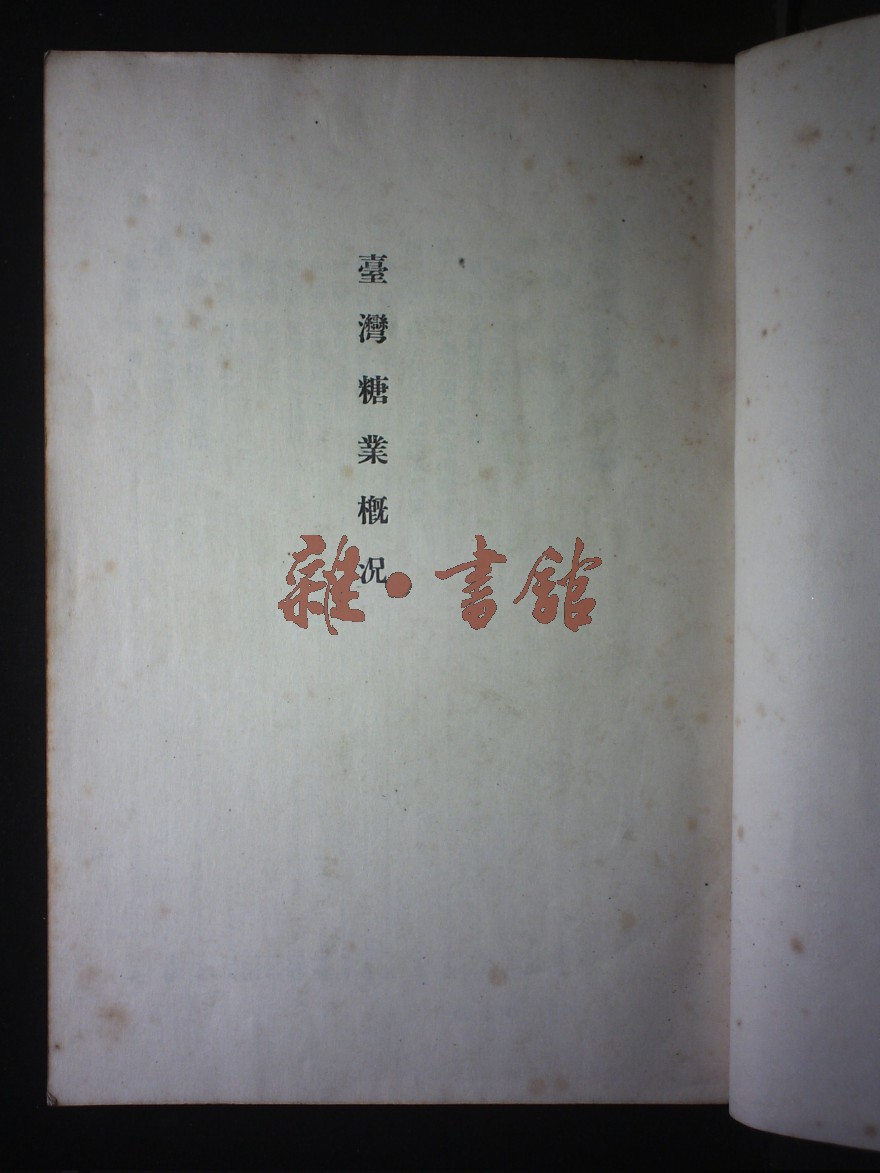 臺灣糖業概况
雜·書館